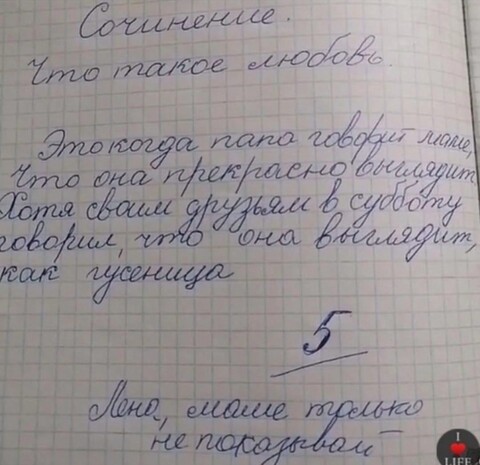 Сочинение.
Что такое любовь.
Это когда папа говорит маме,
Что она прекрасно выглядит
Хотя своим друзьям в субботу
говорил, что она выглядит,
как гусеница
5
Лена, маме только
не показывай
I
LIFE.